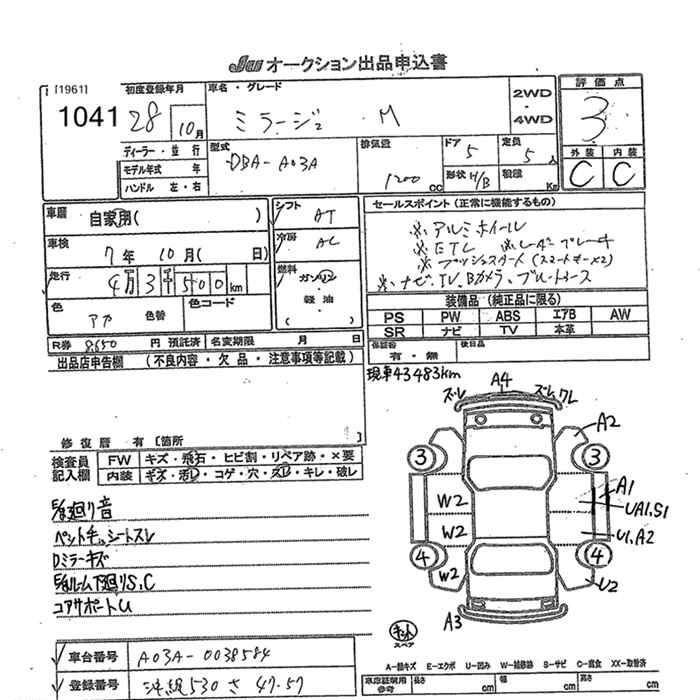 JU オークション出品申込書
[1961]
1041
初度登録年月
28 10月
車名・グレード
ミラージュ M
2WD
4WD
評価点
3
外装 内装
C C
ディーラー・並行
モデル年式 年
ハンドル 左・右
型式
DBA-A03A
排気量
1200 cc
ドア
5
定員
5 人
形状 H/B
積載 Kg
車歴 自家用( )
車検 7年 10月( 日)
走行 4万3千500km
色 アカ 色替
色コード
シフト AT
冷房 AC
燃料 ガソリン
軽油
( )
セールスポイント(正常に機能するもの)
※アルミホイール
※ETC ※レーダーブレーキ
※プッシュスタート(スマートキー×2)
※ナビ、TV、Bカメラ、ブルートゥース
装備品(純正品に限る)
PS PW ABS エアB AW
SR ナビ TV 本革
R券 8,650 円 預託済 名変期限 月 日
保証書 有・無
後日品
出品店申告欄 (不良内容・欠品・注意事項等記載)
現車43483km
修復歴 有[箇所
検査員記入欄
FW キズ・飛石・ヒビ割・リペア跡・×要
内装 キズ・汚レ・コゲ・穴・スレ・キレ・破レ
ズレ A4 ズレ、ワレ
A2
3 3
A1
W2 UA1.S1
W2 U1.A2
4 4
W2 U2
A3
キット
スペア
足廻り音
ペット毛、シートスレ
Dミラーキズ
ルーム下廻りS.C
コアサポートU
車台番号 A03A-0038584
登録番号 沖縄530 さ 47-57
A-線キズ E-エクボ U-凹み W-補修跡 S-サビ C-腐食 XX-取替済
車庫証明用参考 長さ cm 幅 cm 高さ cm